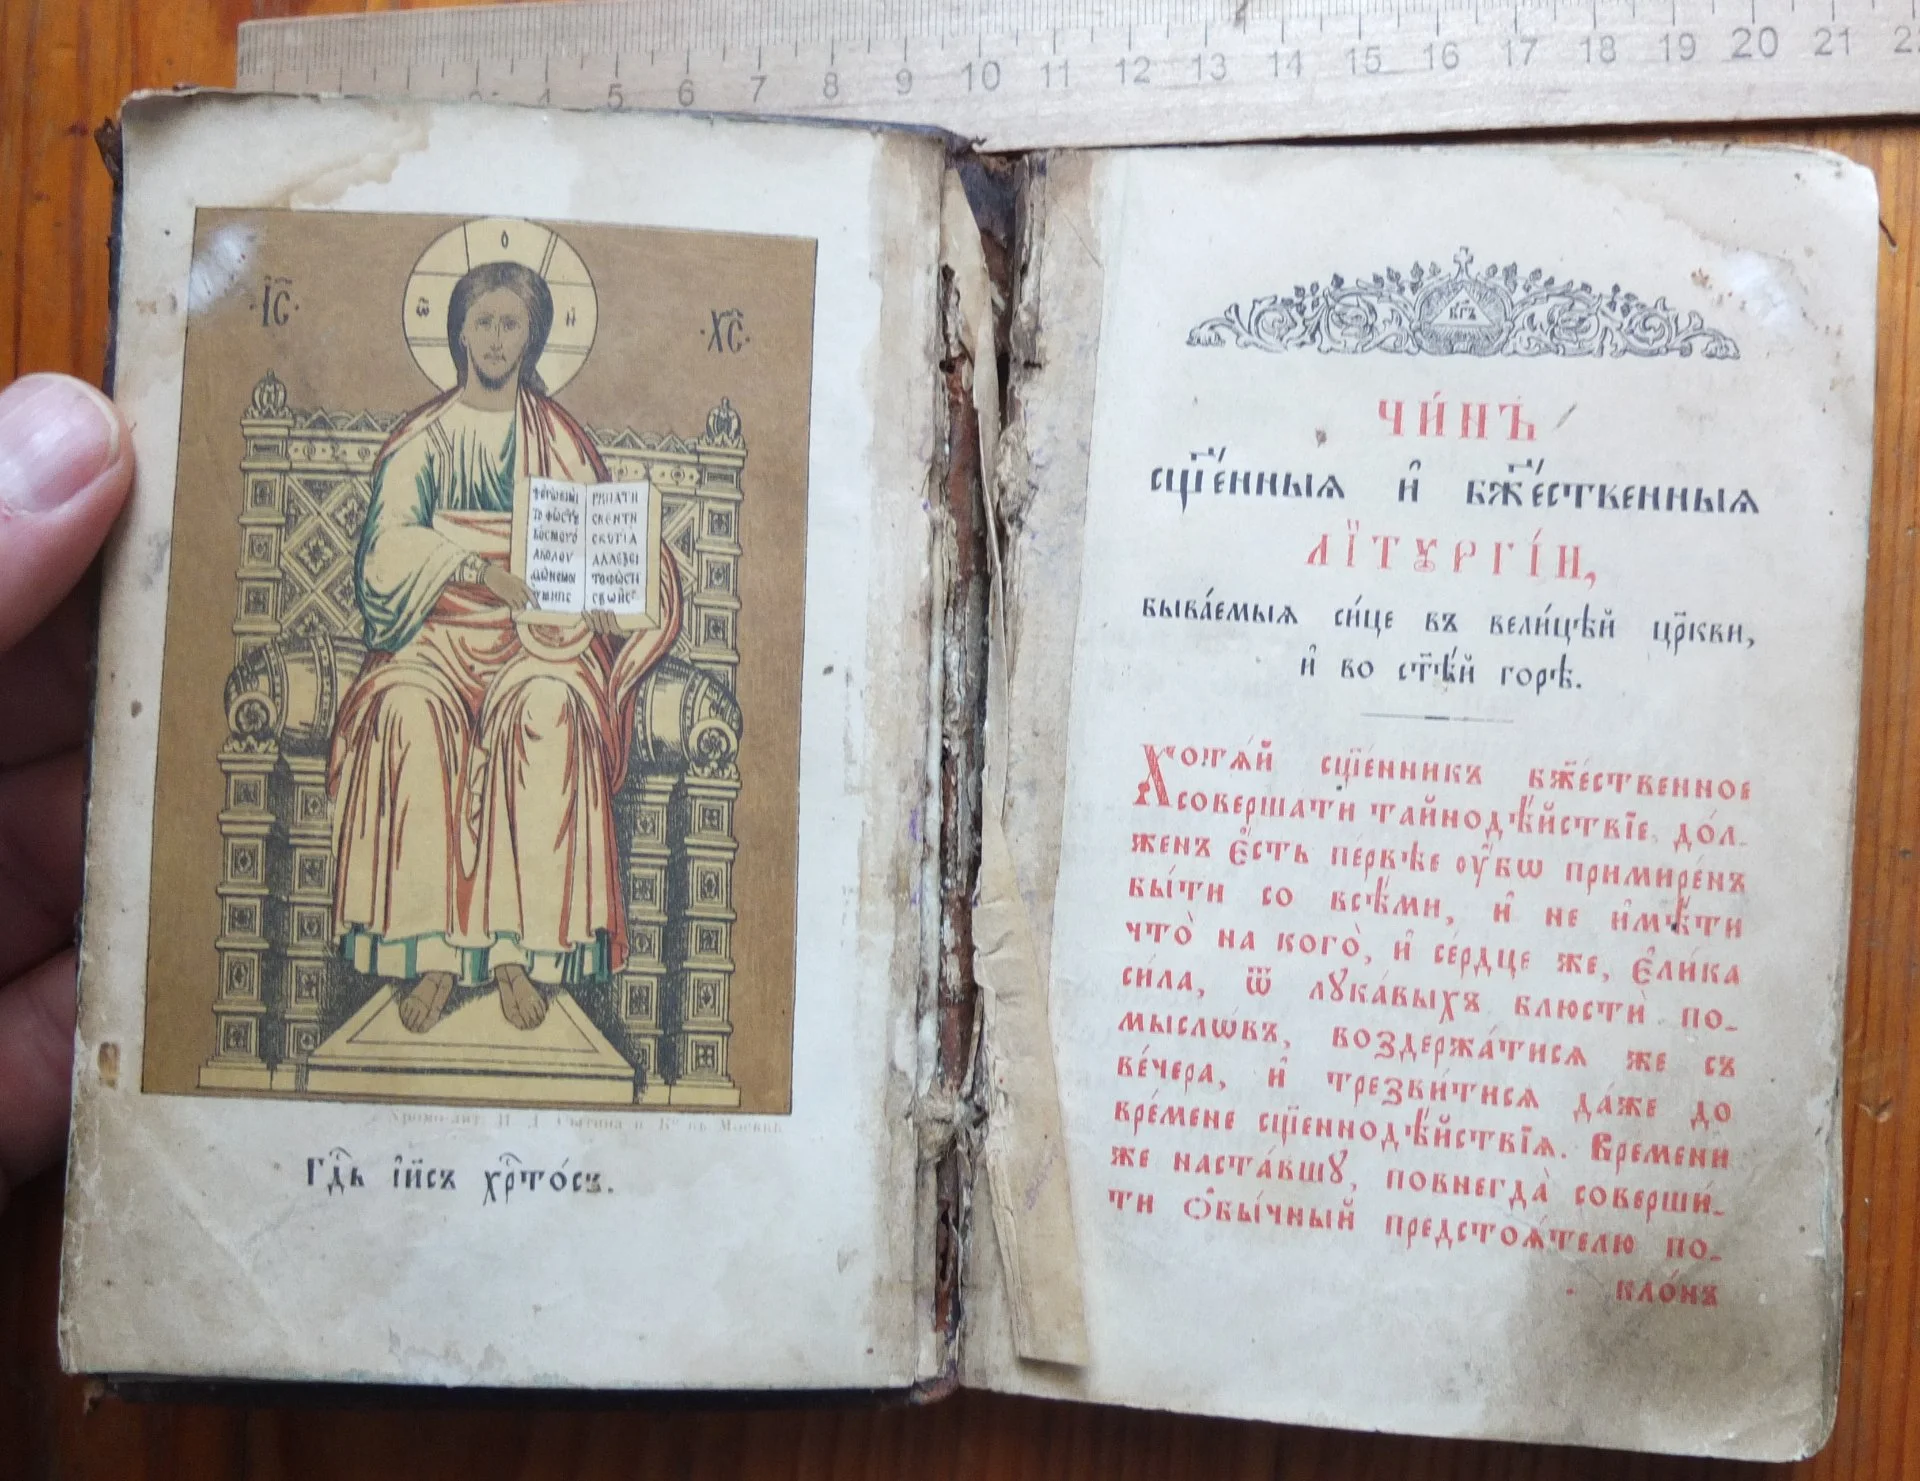 4 5 6 7 8 9 10 11 12 13 14 15 16 17 18 19 20 21
І҆С
ХС
ѡ о н
РИПАТИ
ТО ФѠСТꙋ СКЕНТН
КОСМОГО СКОТІА
АКОЛОУ АЛЛЕЗЕІ
ТОФѠСТИ
Хромо-лит. И. Д. Сытина и Ко въ Москвѣ
Гдⷭ҇ь і҆и҃съ хрⷭ҇то́съ.
БГЪ
ЧИ́НЪ
сщ҃е́нныѧ и҆ бж҃е́ственныѧ
ЛЇТꙊРГІ́И,
быва́емыѧ си́це въ вели́цѣй цр҃кви,
и҆ во ст҃ѣ́й горѣ̀.
Хотѧ́й сщ҃е́нникъ бж҃е́ственное
соверша́ти тайнодѣ́йствїе, до́л-
женъ є҆́сть пе́рвѣе ᲂу҆́бѡ примире́нъ
бы́ти со всѣ́ми, и҆ не и҆мѣ́ти
что̀ на кого̀, и҆ се́рдце же, є҆ли́ка
си́ла, ѿ лꙋка́выхъ блюстѝ по-
мыслѡ́въ, воздержа́тисѧ же съ
ве́чера, и҆ трезви́тисѧ да́же до
вре́мене сщ҃еннодѣ́йствїѧ. Вре́мени
же наста́вшꙋ, повнегда̀ соверши́-
ти ѻ҆бы́чный предстоѧ́телю по-
кло́нъ